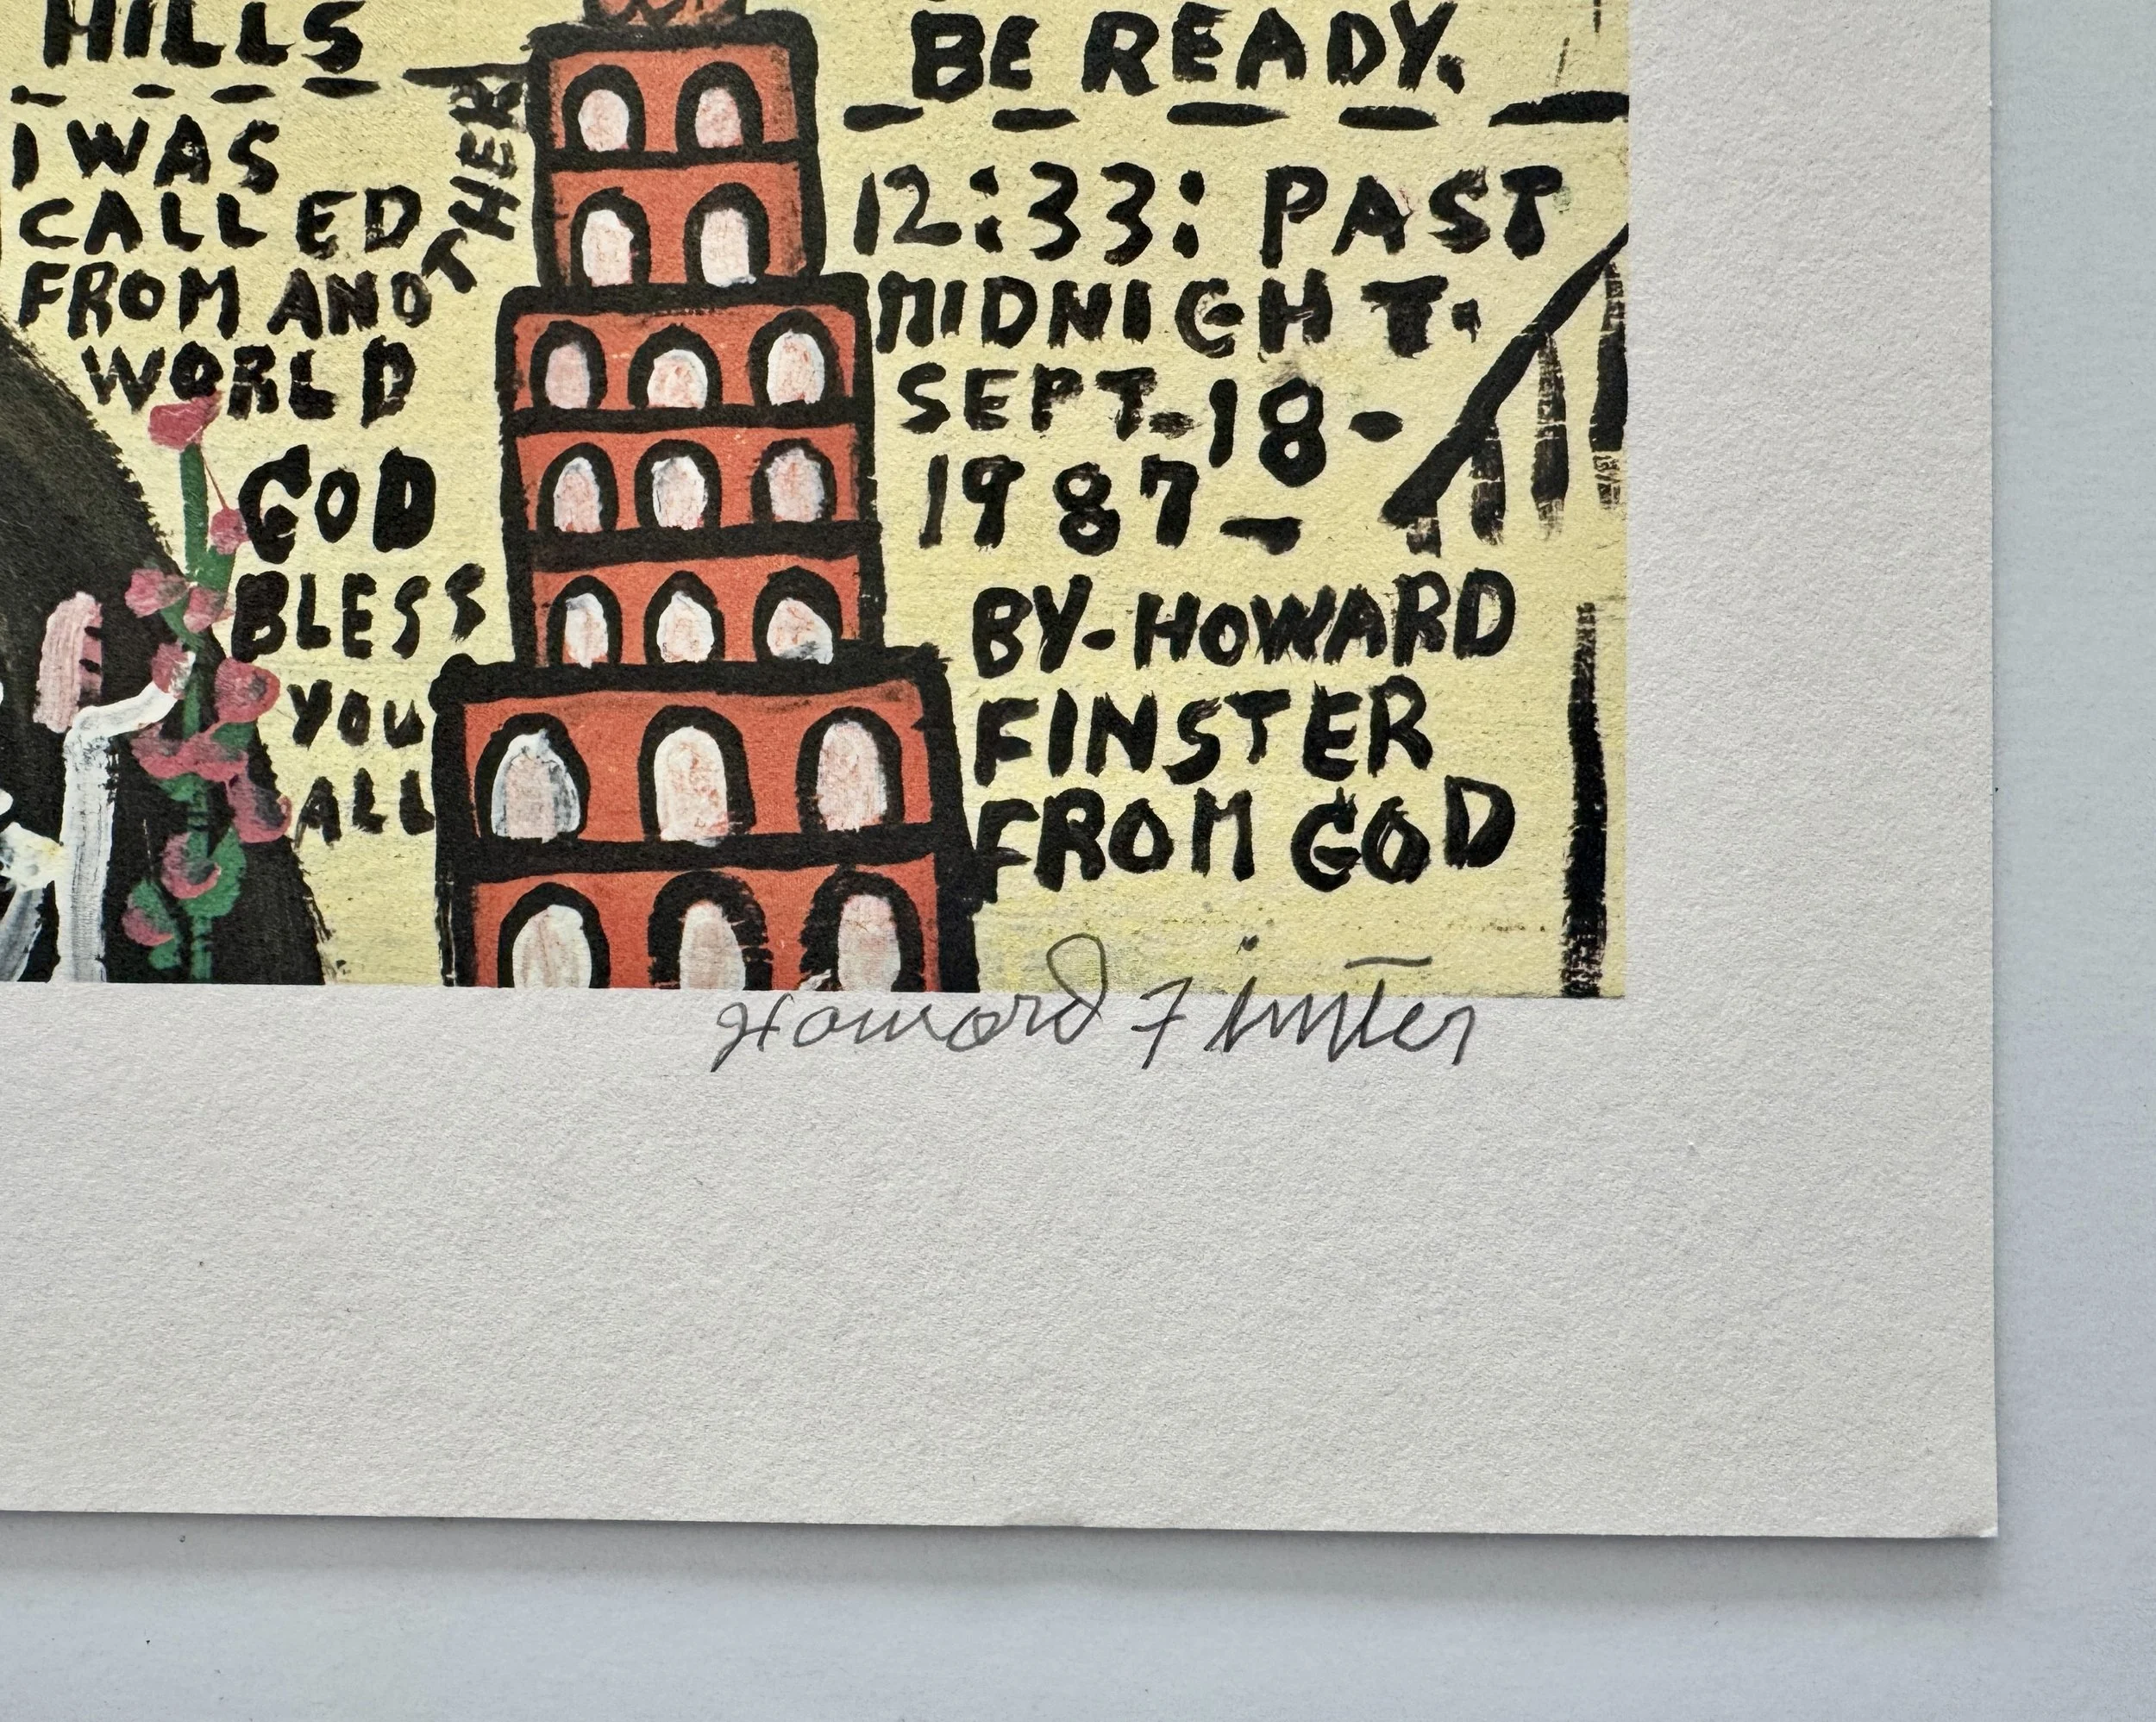 HILLS
I WAS
CALLED
FROM ANOTHER
WORLD
GOD
BLESS
YOU
ALL
BE READY.
12:33: PAST
MIDNIGHT.
SEPT. 18-
1987-
BY-HOWARD
FINSTER
FROM GOD
Howard Finster